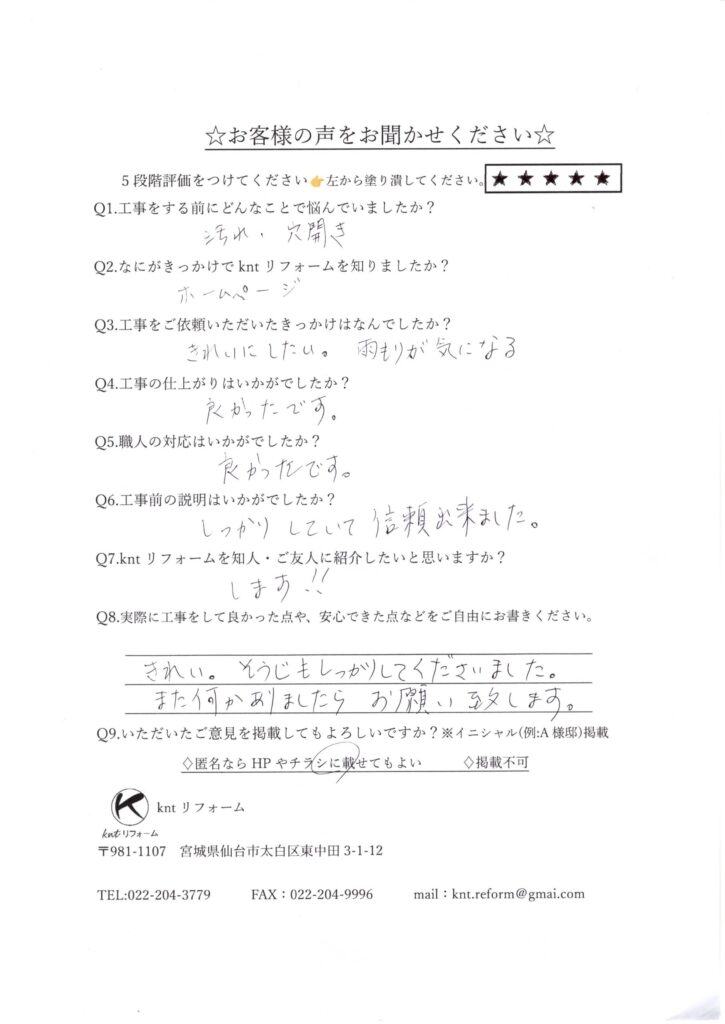 ☆お客様の声をお聞かせください☆
5段階評価をつけてください👉左から塗り潰してください。★★★★★
Q1.工事をする前にどんなことで悩んでいましたか？
汚れ・穴開き
Q2.なにがきっかけで knt リフォームを知りましたか？
ホームページ
Q3.工事をご依頼いただいたきっかけはなんでしたか？
きれいにしたい。 雨もりが気になる
Q4.工事の仕上がりはいかがでしたか？
良かったです。
Q5.職人の対応はいかがでしたか？
良かったです。
Q6.工事前の説明はいかがでしたか？
しっかりしていて信頼出来ました。
Q7.knt リフォームを知人・ご友人に紹介したいと思いますか？
します!!
Q8.実際に工事をして良かった点や、安心できた点などをご自由にお書きください。
きれい。そうじもしっかりしてくださいました。
また何かありましたら お願い致します。
Q9.いただいたご意見を掲載してもよろしいですか？※イニシャル(例:A 様邸)掲載
◇匿名なら HP やチラシに載せてもよい ◇掲載不可
K knt リフォーム
kntリフォーム
〒981-1107 宮城県仙台市太白区東中田 3-1-12
TEL:022-204-3779 FAX：022-204-9996 mail：knt.reform@gmai.com